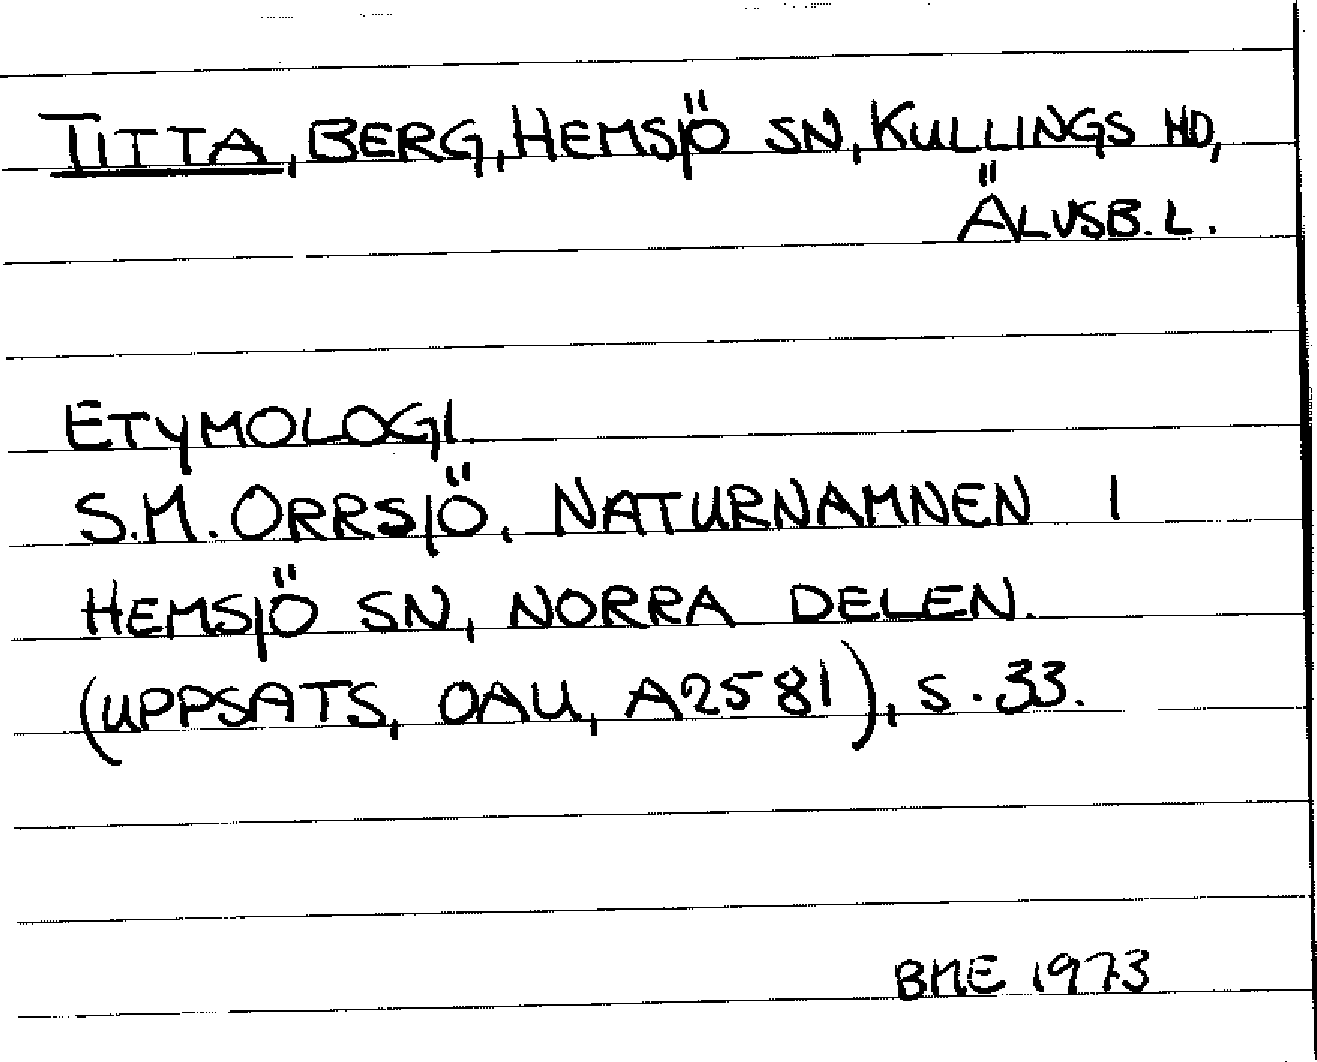 TITTA, BERG, HEMSJÖ SN, KULLINGS HD,
ÄLVSB. L.
ETYMOLOGI.
S.M. ORRSJÖ, NATURNAMNEN I
HEMSJÖ SN, NORRA DELEN.
(UPPSATS, OAU, A2581), S. 33.
BME 1973